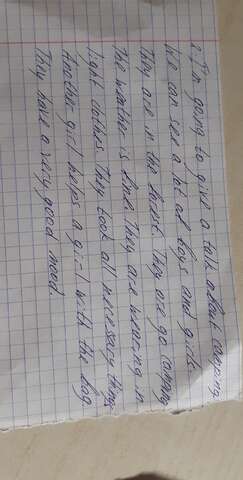 2. I'm going to give a talk about camping.
We can see a lot of boys and girls.
They are in the forest. They are go camping
The weather is fine. They are wearing in
light clothes. They took all necessary things.
Another girl helps a girl with the bag.
They have a very good mood.